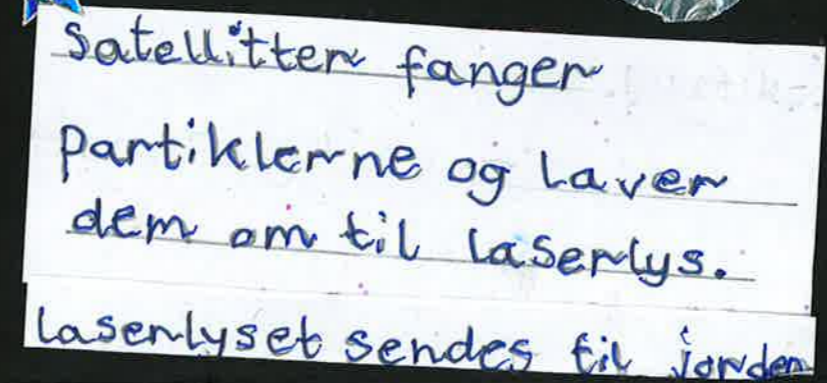 Satellitter fanger
Partiklerne og laver
dem om til laserlys.
laserlyset sendes til jorden